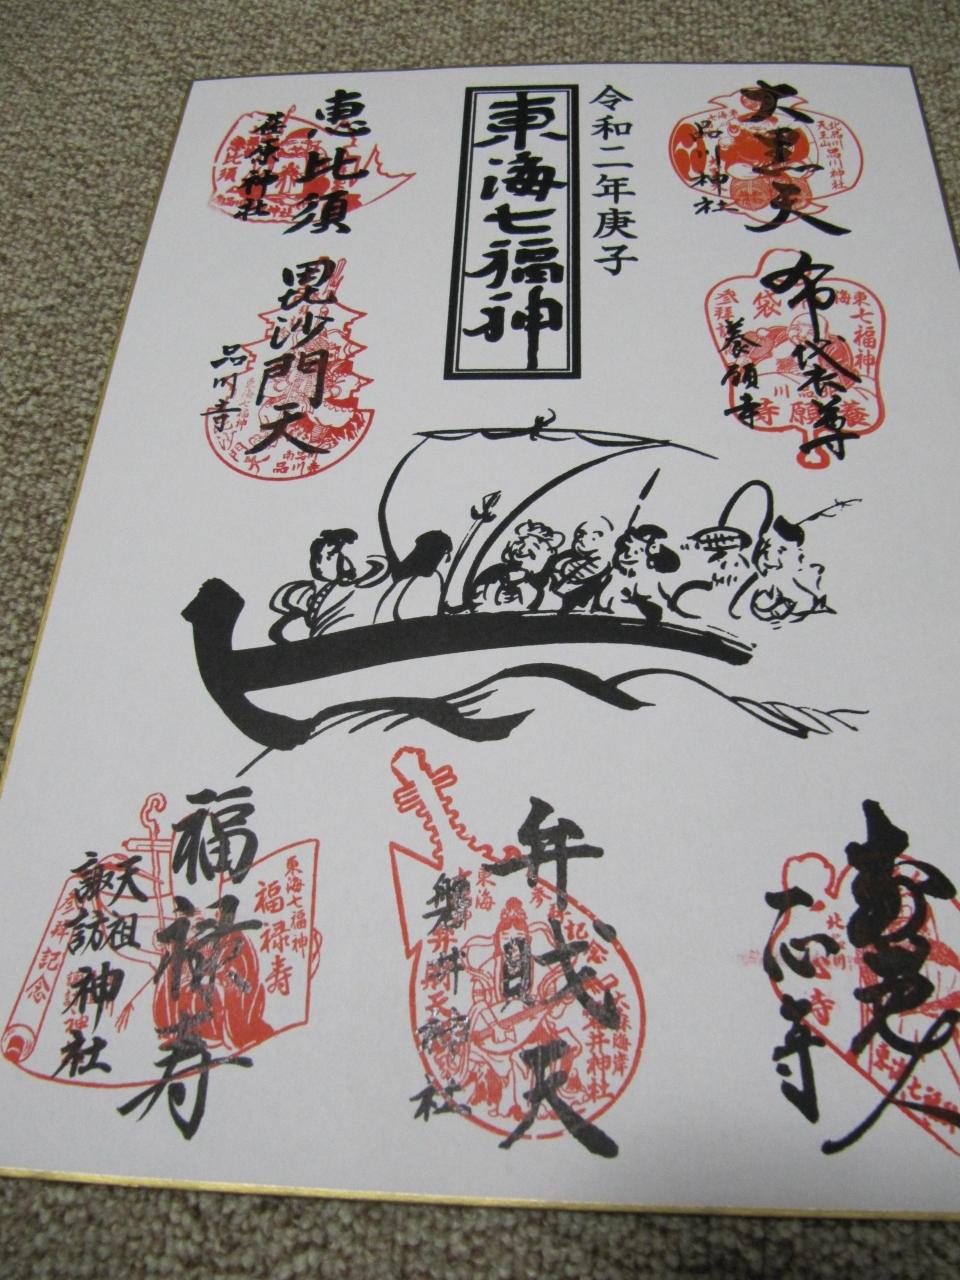 令和二年庚子
東海七福神
大黒天
品川神社
北品川
天王山
品川神社
布袋尊
養願寺
東海
七福神
参拝
寿老人
一心寺
東海七福神
恵比須
荏原神社
毘沙門天
品川寺
南品川
弁財天
磐井神社
東海
参拝記念
大森海岸
磐井神社
福禄寿
天祖
諏訪神社
東海七福神
福禄寿
参拝記念